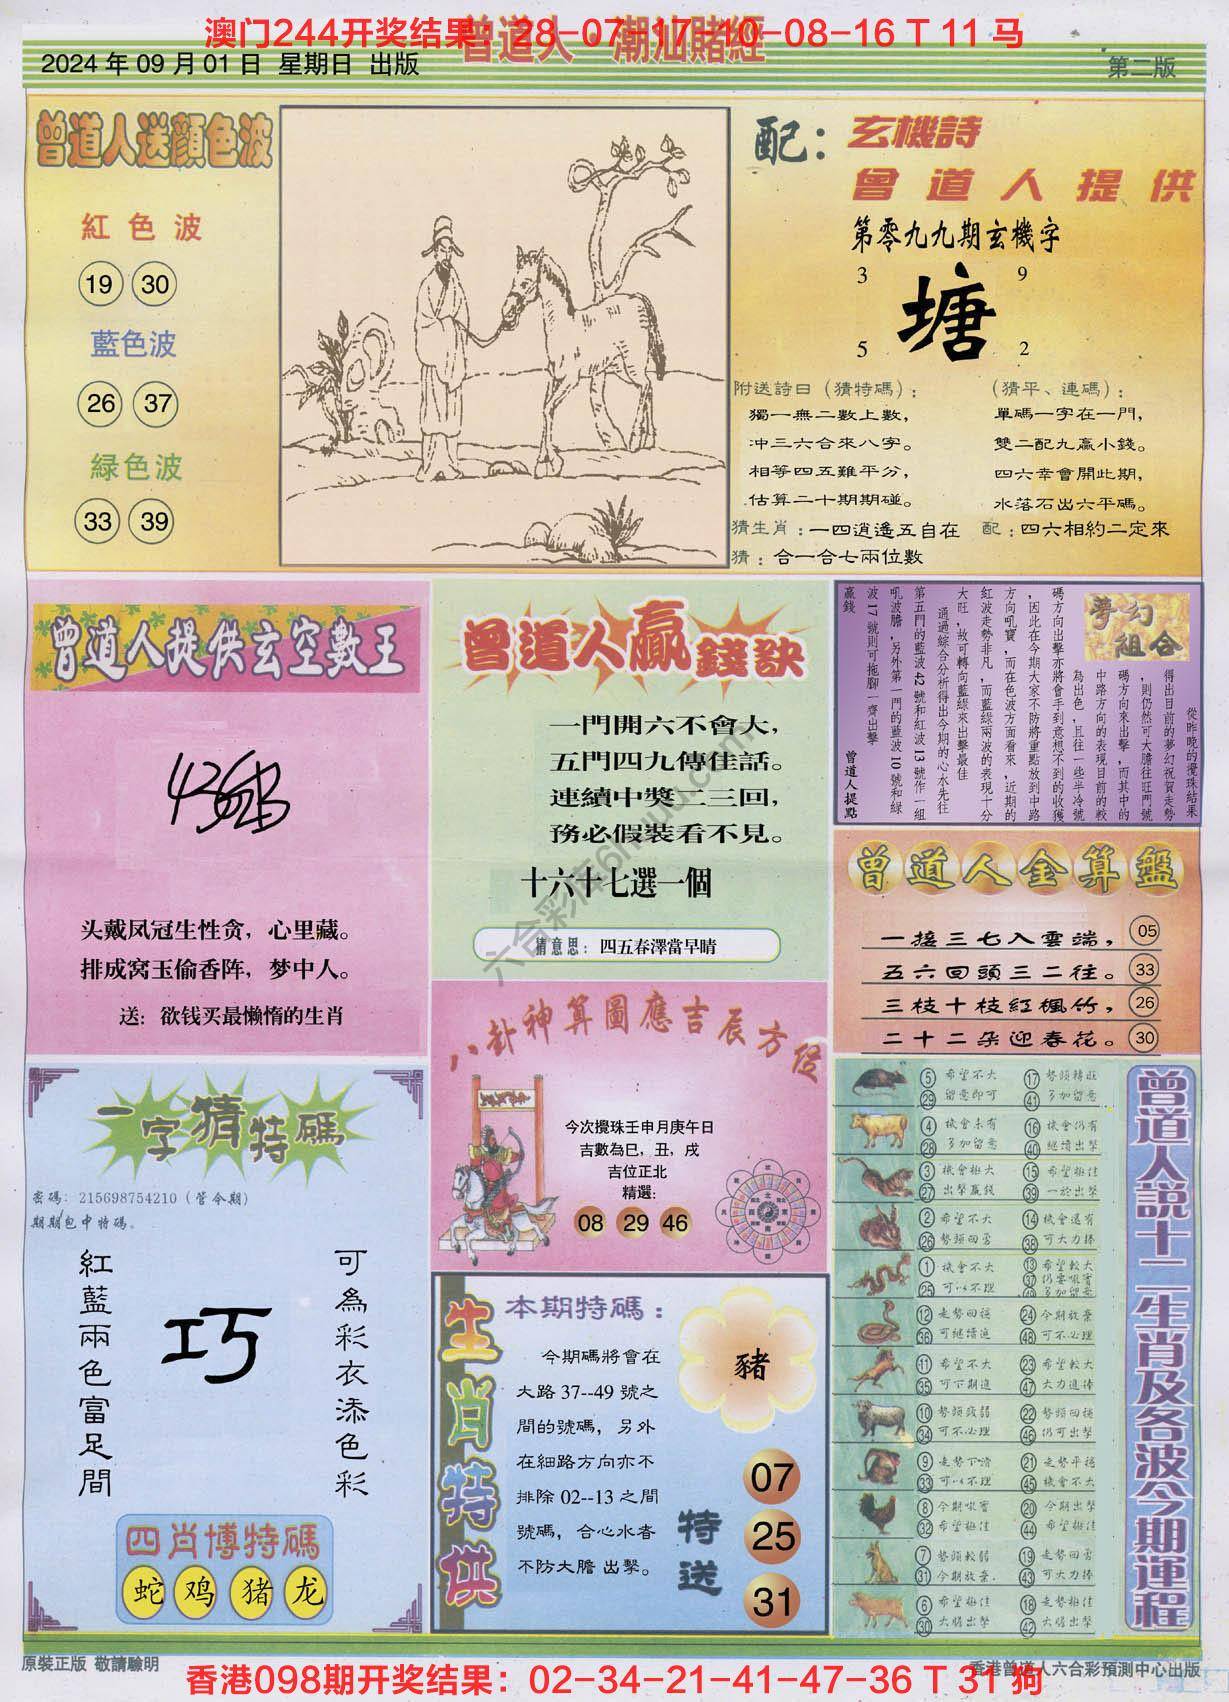 澳门244开奖结果：28-07-17-10-08-16 T 11 马
曾道人·潮汕賭經
2024 年 09 月 01 日 星期日 出版
第二版
曾道人送顏色波
紅 色 波
19 30
藍色波
26 37
緑色波
33 39
配：
玄機詩
曾 道 人 提 供
第零九九期玄機字
3 9
塘
5 2
附送詩曰（猜特碼）：
獨一無二數上數，
冲三六合來八字。
相等四五難平分，
估算二十期期碰。
（猜平、連碼）：
單碼一字在一門，
雙二配九贏小錢。
四六幸會開此期，
水落石出六平碼。
猜生肖：一四逍遙五自在
配：四六相約二定來
猜：合一合七兩位數
曾道人提供玄空數王
头戴凤冠生性贪，心里藏。
排成窝玉偷香阵，梦中人。
送：欲钱买最懒惰的生肖
曾道人贏錢訣
一門開六不會大，
五門四九傳佳話。
連續中獎二三回，
務必假裝看不見。
十六十七選一個
猜意思：四五春澤當早晴
六合彩库6huu.com
夢幻
組合
從昨晚的攪珠結果
得出目前的夢幻祝賀走勢
，則仍然可大膽往旺門號
碼方向來出擊，而其中的
中路方向的表現目前的較
為出色，且往一些半冷號
碼方向出擊亦將會手到意想不到的收獲
，因此在今期大家不防將重點放到中路
方向吼寶，而在色波方面看來，近期的
紅波走勢非凡，而藍綠兩波的表現十分
大旺，故可轉向藍綠來出擊最佳
通過綜合分析得出今期的心水先往
第五門的藍波42號和紅波13號作一組
吼波膽，另外第一門的藍波10號和綠
波17號則可拖腳一齊出擊
贏錢
曾道人提點
曾道人金算盤
一接三七入雲端， 05
五六回頭三二往。 33
三枝十枝紅楓竹， 26
二十二朵迎春花。 30
八卦神算圖應吉辰方位
今次攪珠壬申月庚午日
吉數為巳，丑，戌
吉位正北
精選：
08 29 46
一字猜特碼
密碼：215698754210（管令期）
期期包中特碼。
可為彩衣添色彩
巧
紅藍兩色富足間
四肖博特碼
蛇 鸡 猪 龙
生肖特供
本期特碼：
今期碼將會在
大路 37--49 號之
間的號碼，另外
在細路方向亦不
排除 02--13 之間
號碼，合心水者
不防大膽 出擊。
豬
特送
07
25
31
曾道人説十二生肖及各波今期運程
5 希望不大 17 勢頭轉旺
29 留意即可 41 多加留意
4 機會未有 16 機會仍有
28 多加留意 40 繼續出擊
3 機會極大 15 希望極佳
27 出擊贏錢 39 一於出擊
2 希望不大 14 機會還有
26 勢頭回勇 38 可大力捧
1 機會不大 13 希望較大
25 可以不理 37
12 走勢回穩 24 今期放棄
36 可繼續追 48 可不必理
11 希望不大 23 希望較大
35 可下期進 47 大力追捧
10 勢頭致弱 22 勢頭回穩
34 可不必理 46 仍可出擊
9 走勢下滑 21 走勢平穩
33 可以不理 45 機會不大
8 今期吼寶 20 今期出擊
32 希望極佳 44 希望極佳
7 勢頭較弱 19 走勢回勇
31 今期放棄. 43 可大力捧
6 希望極佳 18 走勢極佳
30 大膽出擊 42 大膽出擊
原裝正版 敬請驗明
香港曾道人六合彩預測中心出版
香港098期开奖结果：02-34-21-41-47-36 T 31 狗